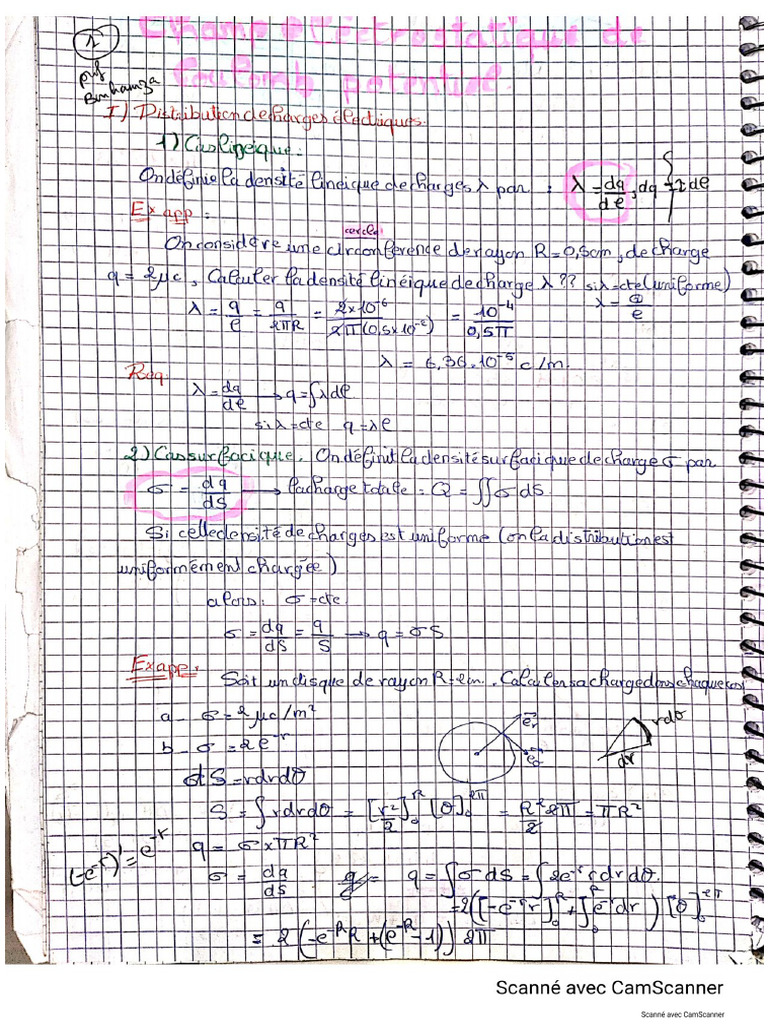 1
prof
Benhamza
Champ électrostatique de
Coulomb potentiel.
I) Distribution de charges électriques.
1) Cas linéique:
On définie la densité linéique de charges λ par : λ = dq/dl, dq = λ dl
Ex app :
cercle
On considère une circonférence de rayon R=0,5cm, de charge
q = 2μc, Calculer la densité linéique de charge λ?? si λ=cte (uniforme)
λ = q/l = q/2πR = 2×10⁻⁶/2π(0,5×10⁻²) = 10⁻⁴/0,5π λ = Q/l
λ = 6,36.10⁻⁵ c/m.
Req:
λ = dq/dl → q = ∫λdl
si λ=cte q=λl
2) Cas surfacique. On définit la densité surfacique de charge σ par
σ = dq/dS → la charge totale = Q = ∬σ dS.
Si celle densité de charges est uniforme (on la distribution est
uniformément chargée)
alors: σ=cte.
σ = dq/dS = q/S → q = σS
Ex app:
Soit un disque de rayon R= cm. Calculer sa charge dans chaque cas
a_ σ = 2μc/m²
b_ σ = 2e⁻ʳ
er
eθ
rdθ
dr
dS = rdrdθ
S = ∫rdrdθ = [r²/2]₀ᴿ [θ]₀²π = R²/2 2π = πR²
(-e⁻ʳ)' = e⁻ʳ
q = σ×πR²
σ = dq/dS q = ∫σ dS = ∫2e⁻ʳ rdrdθ.
= 2([-e⁻ʳr]₀ᴿ + ∫₀ᴿ e⁻ʳdr) [θ]₀²π
= 2(-e⁻ᴿR + (e⁻ᴿ-1)) 2π
Scanné avec CamScanner
Scanné avec CamScanner